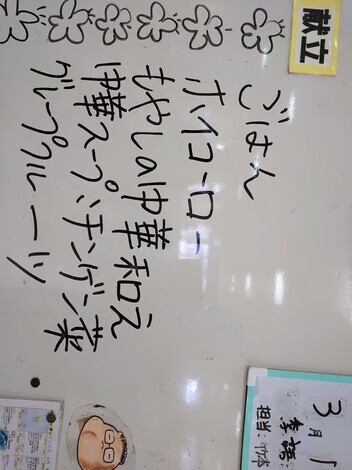 献立
ごはん
ホイコーロー
もやしの中華和え
中華スープ:チンゲン菜
グレープフルーツ
3月
季語
担当: